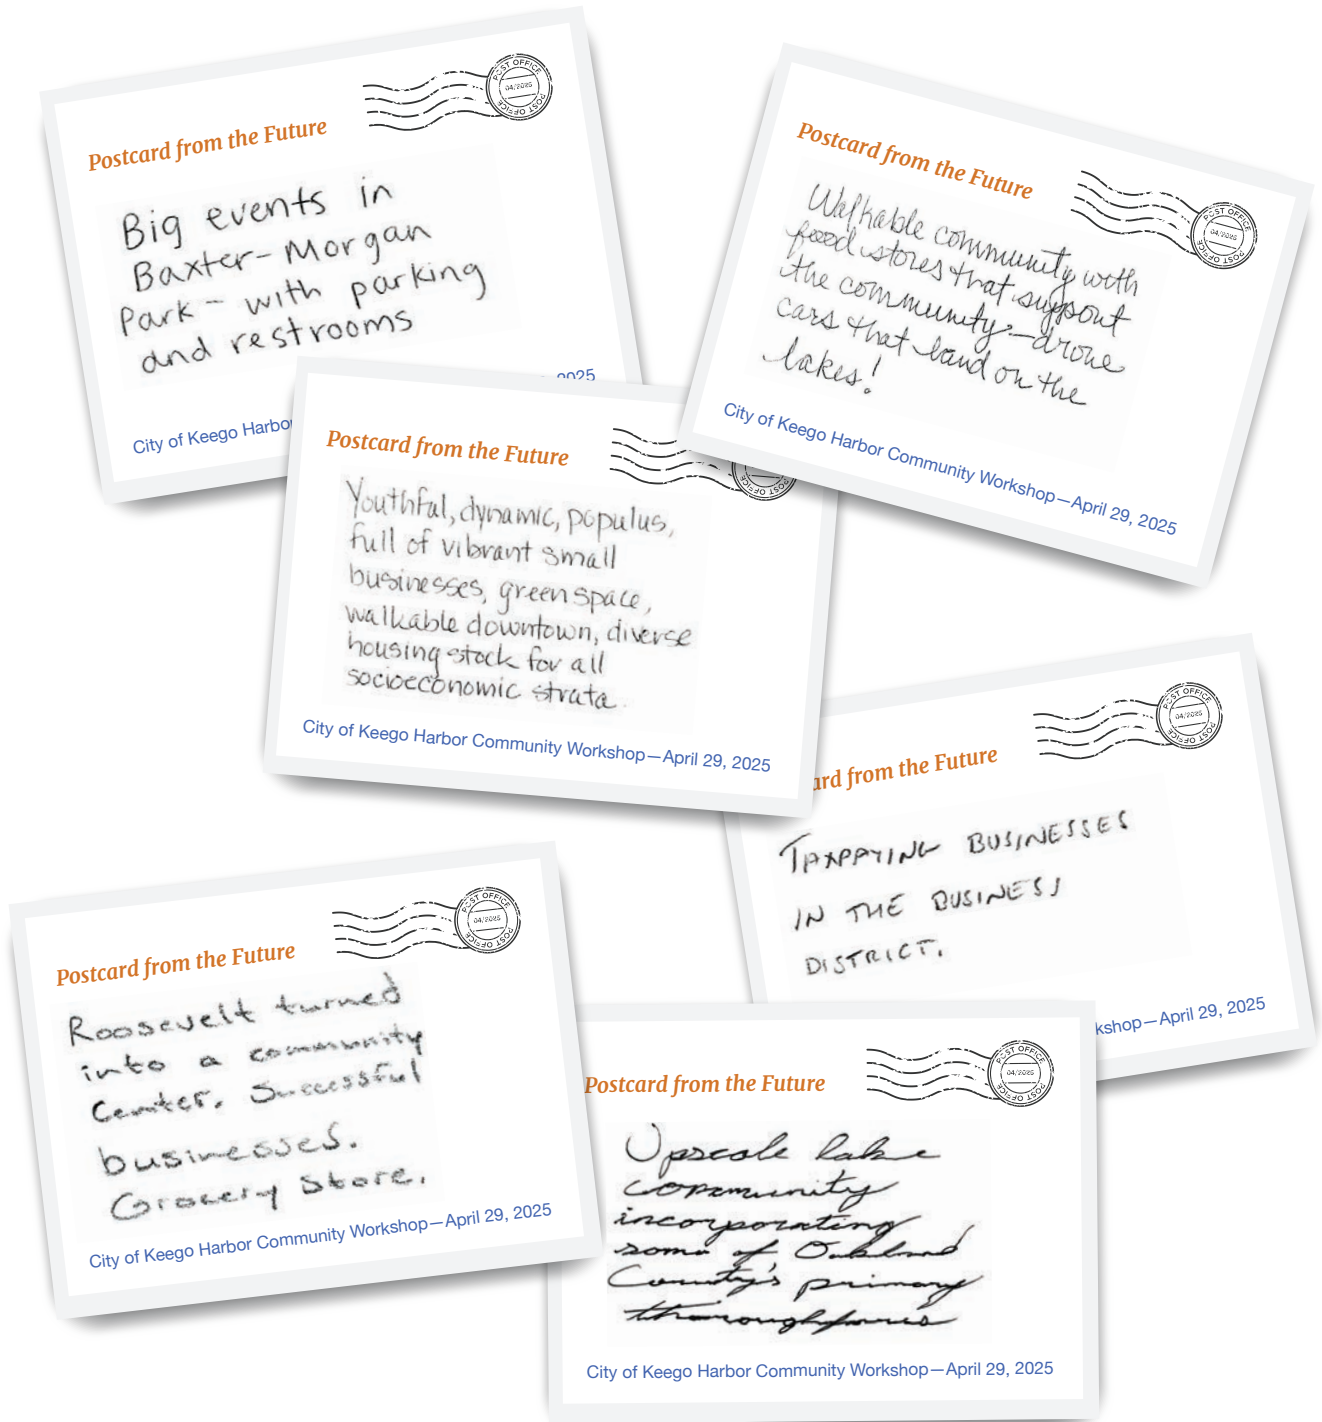 POST OFFICE
04/2025
POST OFFICE
Postcard from the Future
Big events in
Baxter-Morgan
Park - with parking
and restrooms
2025
City of Keego Harbor
POST OFFICE
04/2025
POST OFFICE
Postcard from the Future
Walkable community with
food stores that support
the community - drone
cars that land on the
lakes!
City of Keego Harbor Community Workshop—April 29, 2025
Postcard from the Future
POST OFFICE
Youthful, dynamic, populus,
full of vibrant small
businesses, green space,
walkable downtown, diverse
housing stock for all
socioeconomic strata.
City of Keego Harbor Community Workshop—April 29, 2025
POST OFFICE
04/2025
POST OFFICE
ard from the Future
TAXPAYING BUSINESSES
IN THE BUSINESS
DISTRICT.
kshop—April 29, 2025
POST OFFICE
04/2025
POST OFFICE
Postcard from the Future
Roosevelt turned
into a community
Center. Successful
businesses.
Grocery Store.
City of Keego Harbor Community Workshop—April 29, 2025
POST OFFICE
04/2025
POST OFFICE
Postcard from the Future
Upscale lake
community
incorporating
some of Oakland
County's primary
thoroughfares
City of Keego Harbor Community Workshop—April 29, 2025